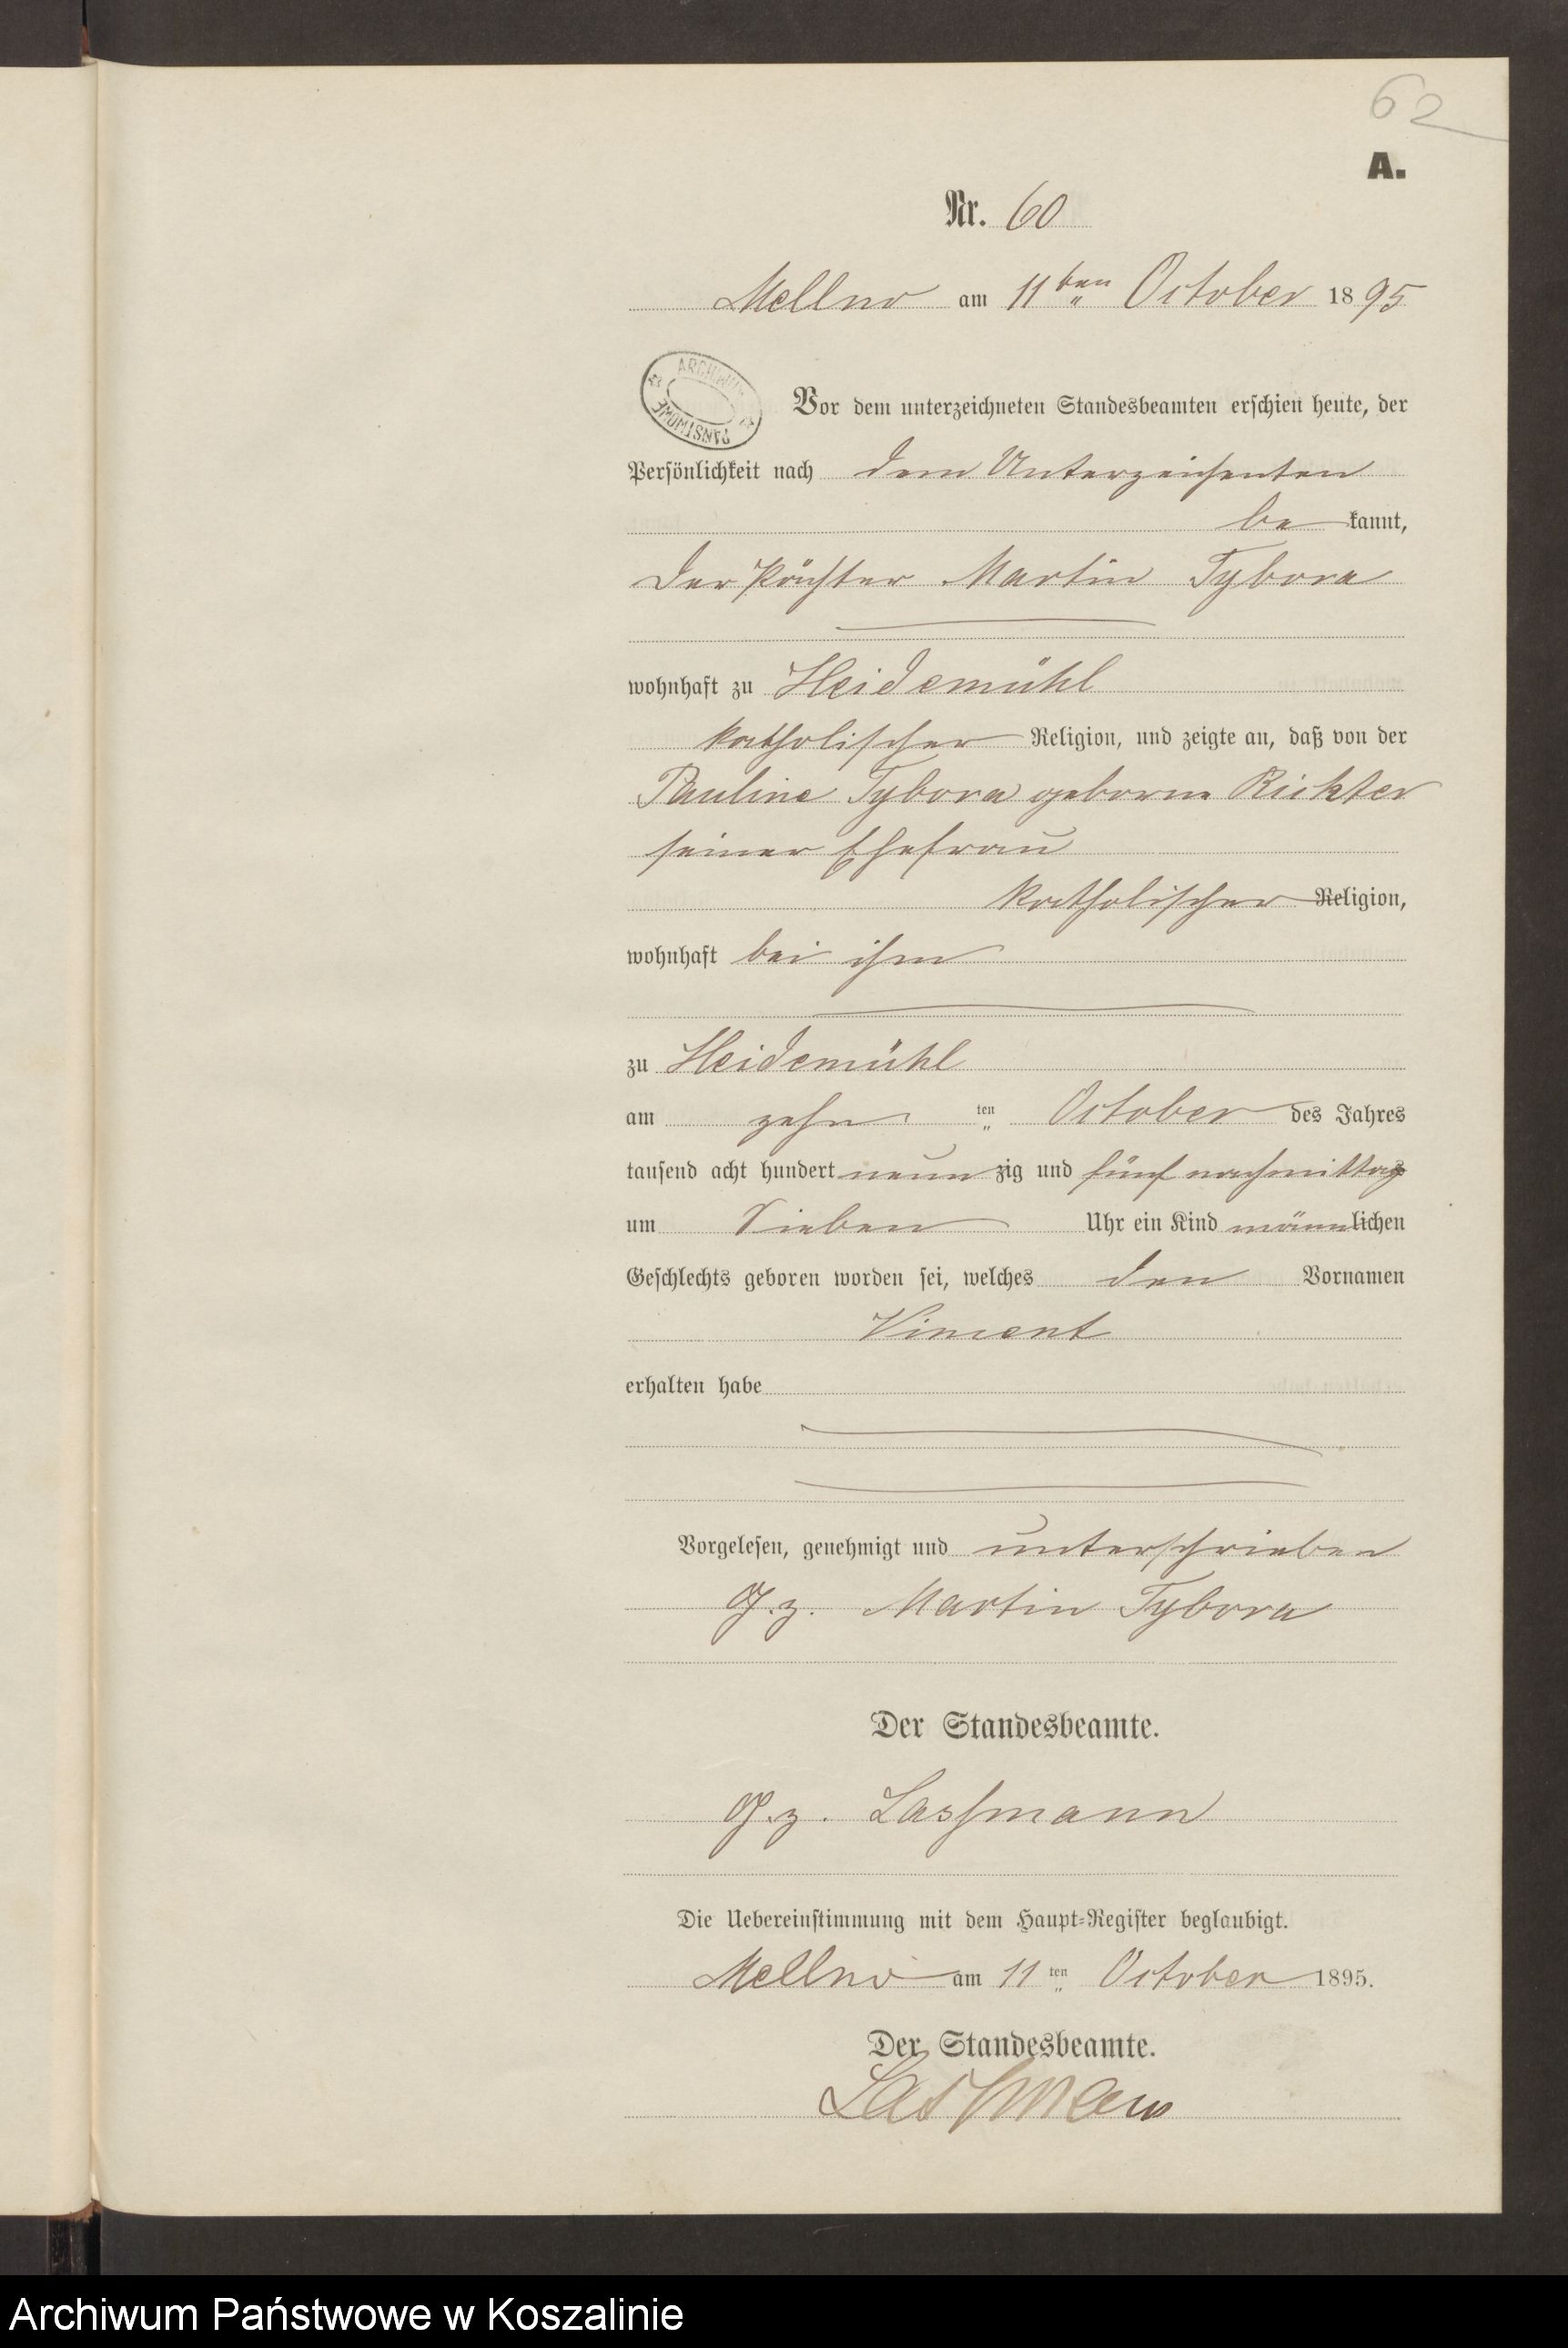 62
A.
Nr. 60
Mellno am 11ten October 1895
ARCHIWUM
PAŃSTWOWE
Vor dem unterzeichneten Standesbeamten erschien heute, der
Persönlichkeit nach dem Unterzeichenten
be kannt,
der Pächter Martin Tybora
wohnhaft zu Heidemühl
katholischer Religion, und zeigte an, daß von der
Pauline Tybora geborne Richter
seiner Ehefrau
katholischer Religion,
wohnhaft bei ihm
zu Heidemühl
am zehn ten October des Jahres
tausend acht hundert neun zig und fünf nachmittags
um Sieben Uhr ein Kind männlichen
Geschlechts geboren worden sei, welches den Vornamen
Vincent
erhalten habe
Vorgelesen, genehmigt und unterschrieben
Gz. Martin Tybora
Der Standesbeamte.
Gz. Lassmann
Die Uebereinstimmung mit dem Haupt-Register beglaubigt.
Mellno am 11 ten October 1895.
Der Standesbeamte.
Lassmann
Archiwum Państwowe w Koszalinie